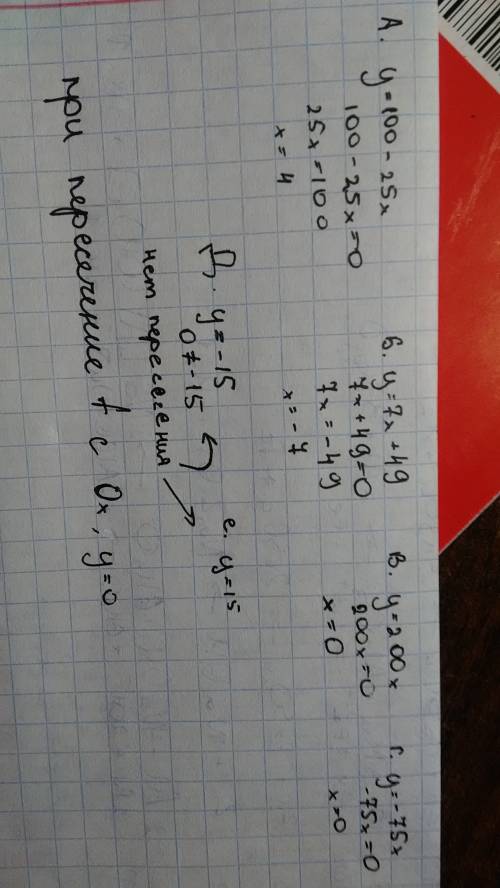 А. y=100-25x
100-25x=0
25x=100
x=4
б. y=7x+49
7x+49=0
7x=-49
x=-7
В. y=200x
200x=0
x=0
Г. y=-75x
-75x=0
x=0
Д. y=-15
0≠-15
нет пересечения
е. y=15
при пересечение f с Ox, y=0